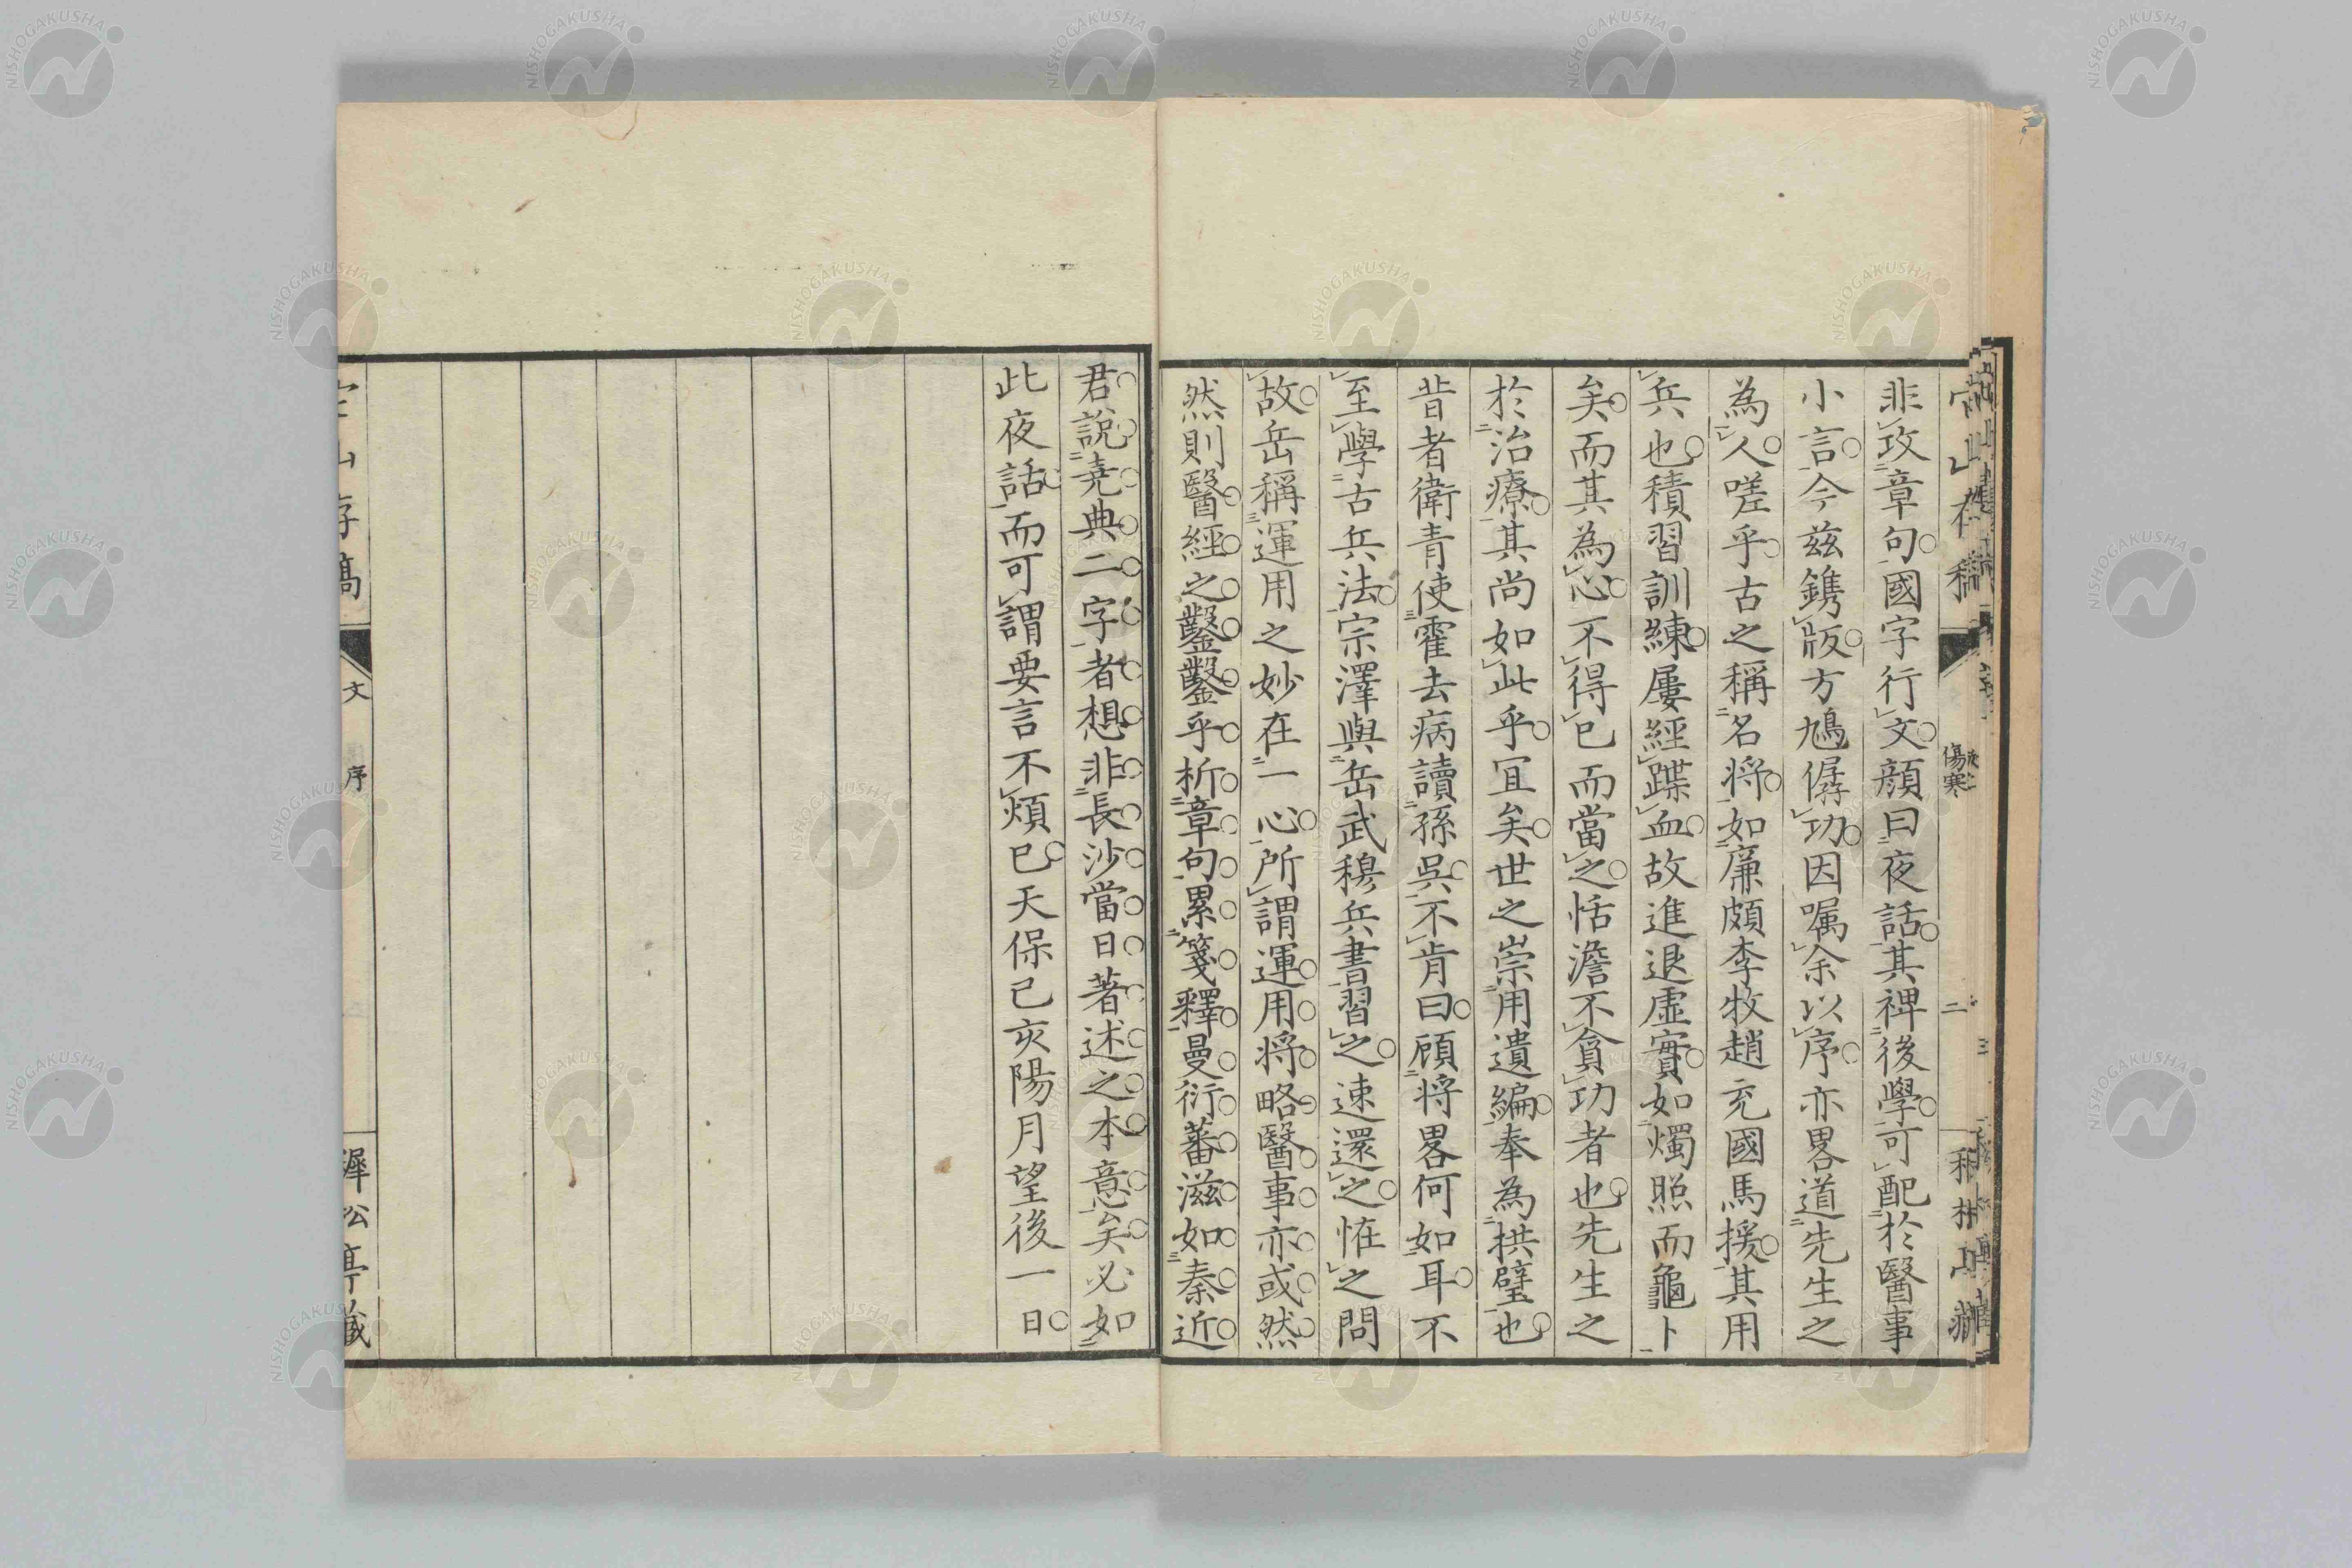 非攻章句國字行文顏曰夜話其裨後學可配於醫事
小言今茲鐫版方鳩僝功因嘱余以序亦畧道先生之
為人嗟乎古之稱名将如廉頗李牧趙充國馬援其用
兵也積習訓練屢經蹀血故進退虛實如燭照而龜卜
矣而其為心不得已而當之恬澹不貪功者也先生之
於治療其尚如此乎冝矣世之崇用遺編奉為拱璧也
昔者衛青使霍去病讀孫吳不肯曰顧将畧何如耳不
至學古兵法宗澤與岳武穆兵書習之速還之恠之問
故岳稱運用之妙在一心所謂運用将略醫事亦或然
然則醫經之鑿鑿乎析章句累箋釋曼衍蕃滋如秦近
君說堯典二字者想非長沙當日著述之本意矣必如
此夜話而可謂要言不煩已天保己亥陽月望後一日
傷寒
二
文
序
存稿
亭藏
NISHOGAKUSHA